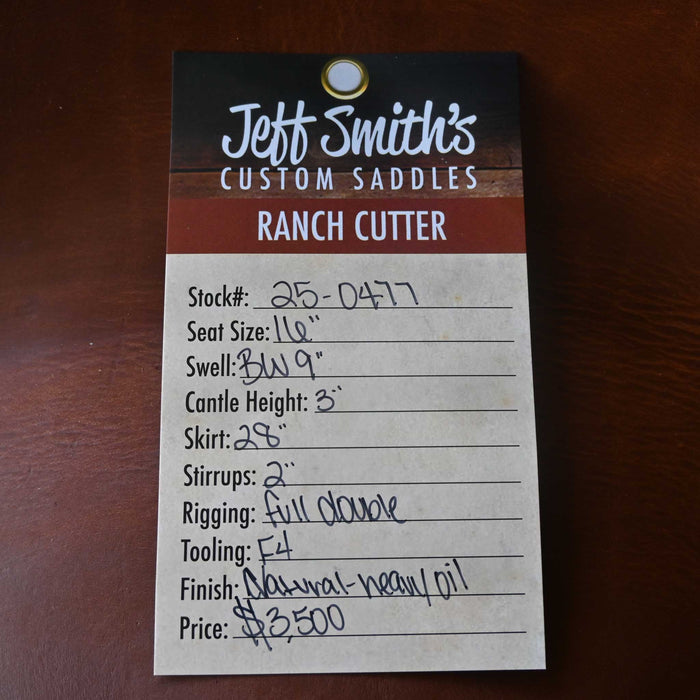 Jeff Smith's
CUSTOM SADDLES
RANCH CUTTER
Stock#: 25-0477
Seat Size: 16"
Swell: BW 9"
Cantle Height: 3"
Skirt: 28"
Stirrups: 2"
Rigging: full double
Tooling: F4
Finish: Natural-heavy oil
Price: $3,500